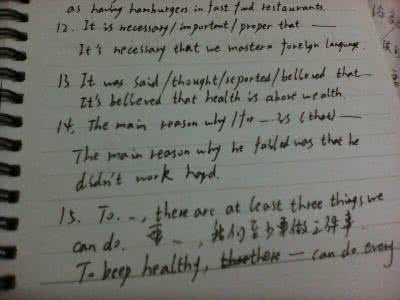 as having hamburgers in fast food restaurants.
12. It is necessary/important/proper that —
It's necessary that we master a foreign language.
13 It was said/thought/reported/believed that
It's believed that health is above wealth.
14. The main reason why/for ... is (that) —
The main reason why he failed was that he
didn't work hard.
15. To ..., there are at least three things we
can do. 要 ..., 我们至少要做三件事
To keep healthy, — can do every